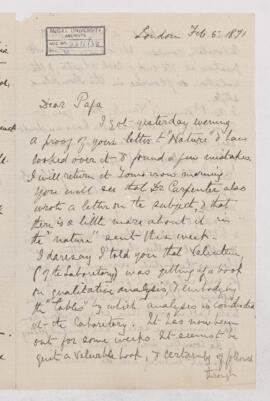 London Feb. 5. 1871
McGILL UNIVERSITY
ARCHIVES
ACC. NO.
Dear Papa
I got yesterday evening
a proof of your letter to "Nature" & have
looked over it & found a few mistakes.
I will return it tomorrow morning
You will see that Dr Carpenter also
wrote a letter on the subject, & that
there is a little more about it in
the "nature" sent this week.
I daresay I told you that Valentin
(of the Laboratory) was getting up a book
on qualitative analysis, & embodying
the "tables" by which analysis is conducted
at the laboratory. It has now been
out for some weeks. It cannot be
quite a valuable book, & certainly if followed
through